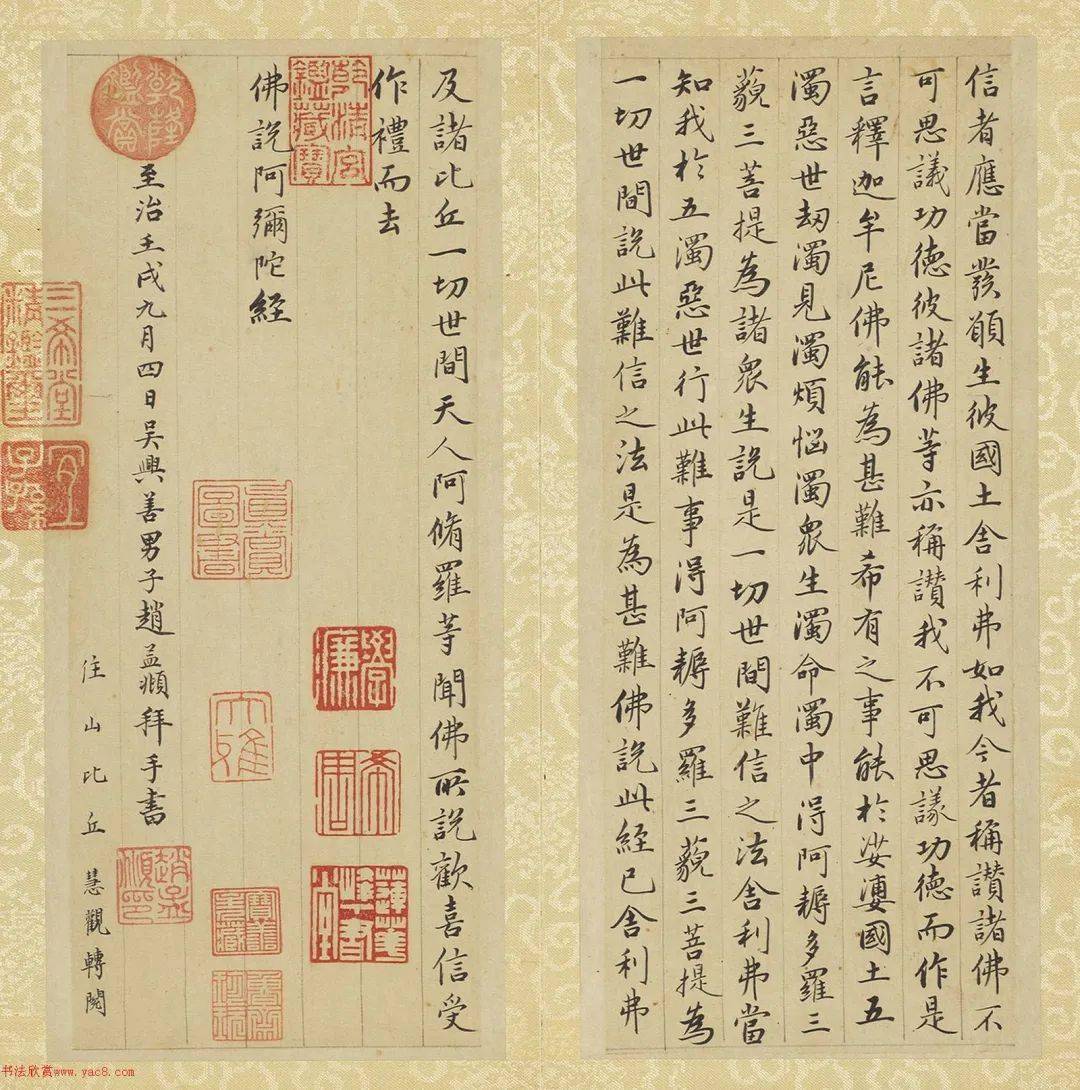 信者應當發願生彼國土舍利弗如我今者稱讃諸佛不
可思議功德彼諸佛等亦稱讃我不可思議功德而作是
言釋迦牟尼佛能為甚難希有之事能於娑婆國土五
濁惡世劫濁見濁煩惱濁眾生濁命濁中得阿耨多羅三
藐三菩提為諸眾生說是一切世間難信之法舍利弗當
知我於五濁惡世行此難事得阿耨多羅三藐三菩提為
一切世間說此難信之法是為甚難佛說此經已舍利弗
及諸比丘一切世間天人阿脩羅等聞佛所說歡喜信受
作禮而去
佛說阿彌陀經
至治壬戌九月四日吳興善男子趙孟頫拜手書
住山比丘慧觀轉閱
乾隆鑑賞
乾清宮鑑藏寶
三希堂精鑑璽
宜子孫
趙孟頫印
書法欣赏www.yac8.com